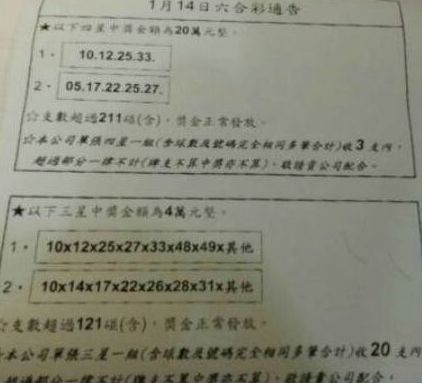 1月14日六合彩通告
★以下四星中獎金額為20萬元整。
1. 10.12.25.33.
2. 05.17.22.25.27.
☆支數超過211碰(含)，獎金正常發放。
☆本公司單張四星一組(含球數及號碼完全相同多筆合計)收3支內，
超過部分一律不計(牌支不算中獎亦不算)，敬請貴公司配合。
★以下三星中獎金額為4萬元整。
1. 10x12x25x27x33x48x49x其他
2. 10x14x17x22x26x28x31x其他
☆支數超過121碰(含)，獎金正常發放。
本公司單張三星一組(含球數及號碼完全相同多筆合計)收20支內
超過部分一律不計(牌支不算中獎亦不算)，敬請貴公司配合。